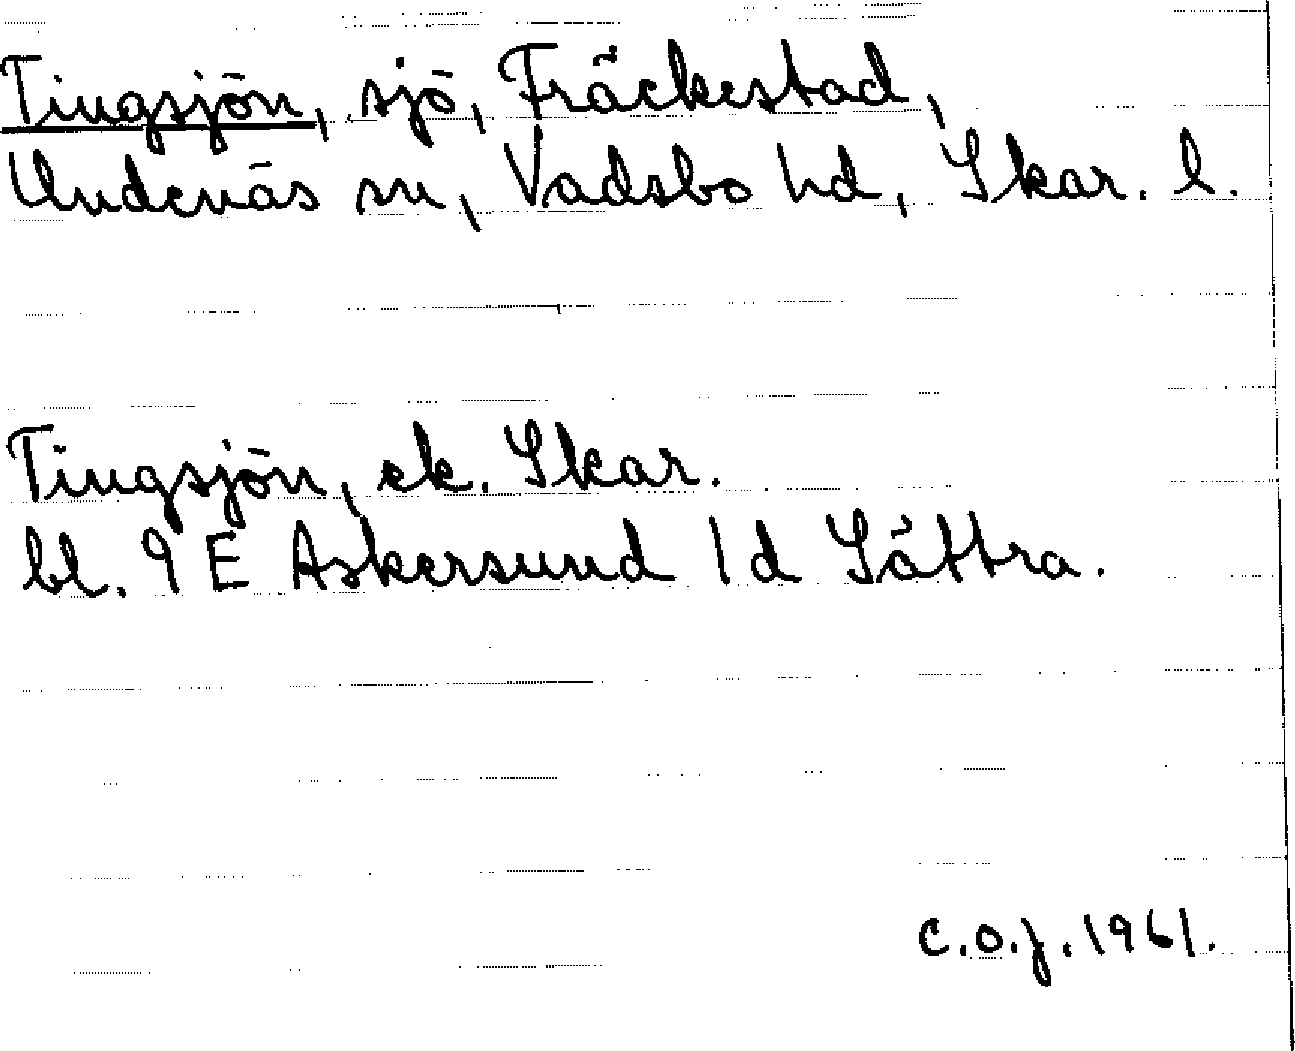 Tingsjön, sjö, Fräckestad,
Undenäs sn, Vadsbo hd, Skar. l.
Tingsjön, ek. Skar.
bl. 9 E Askersund 1d Sätra.
C.O.J. 1961.